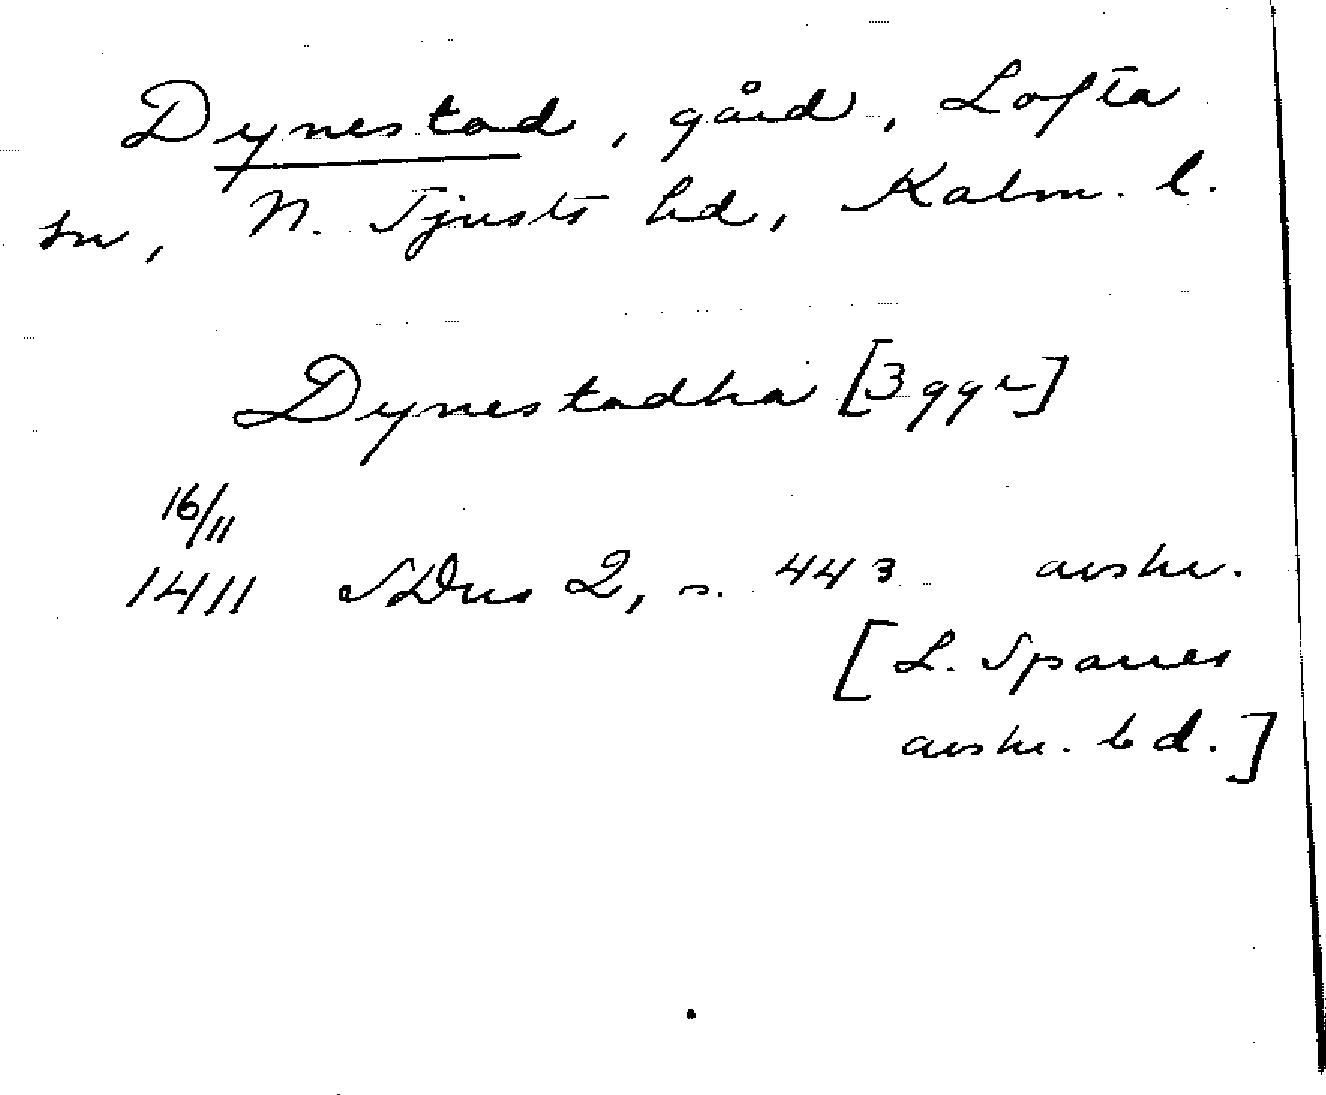 Dynestad, gård, Lofta
sn, N. Tjusts hd, Kalm. l.
Dynestadha [3 ggr]
16/11
1411 SDns 2, s. 443 avskr.
[L. Sparres
avskr. bd.]